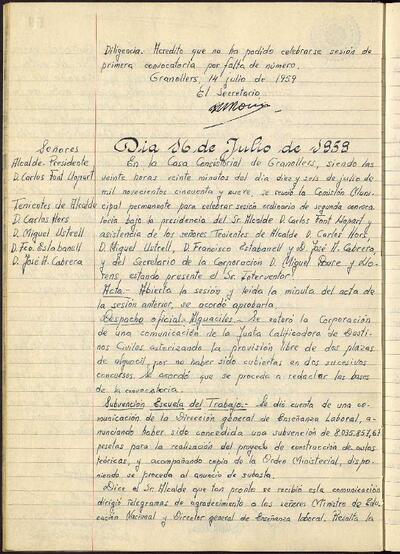 Diligencia. Acredito que no ha podido celebrarse sesión de
primera convocatoria por falta de número.
Granollers, 14 julio de 1959
El Secretario
Señores
Alcalde-Presidente
D. Carlos Font Llopart
Tenientes de Alcalde
D. Carlos Hors
D. Miguel Ustrell
D. Fco. Estabanell
D. José H. Cabrera
Día 16 de Julio de 1959
En la Casa Consistorial de Granollers, siendo las
veinte horas veinte minutos del día diez y seis de julio de
mil novecientos cincuenta y nueve, se reunió la Comisión Muni-
cipal permanente para celebrar sesión ordinaria de segunda convoca-
toria bajo la presidencia del Sr. Alcalde D. Carlos Font Llopart y
asistencia de los señores Tenientes de Alcalde D. Carlos Hors,
D. Miguel Ustrell, D. Francisco Estabanell y D. José H. Cabrera,
y del Secretario de la Corporación D. Miguel y
estando presente el Sr. Interventor.
Acta.- Abierta la sesión y leída la minuta del acta de
la sesión anterior, se acordó aprobarla.
Despacho oficial.- Alguaciles.- Se enteró la Corporación
de una comunicación de la Junta Calificadora de Desti-
nos Civiles autorizando la provisión libre de dos plazas
de alguacil, por no haber sido cubiertas en dos sucesivos
concursos. Se acordó que se proceda a redactar las bases
de la convocatoria.
Subvención Escuela del Trabajo.- Se dió cuenta de una co-
municación de la Dirección general de Enseñanza Laboral, a-
nunciando haber sido concedida una subvención de 8.035.857,67
pesetas para la realización del proyecto de construcción de aulas
teóricas, y acompañando copia de la Orden Ministerial, dispo-
niendo se proceda al anuncio de subasta.
Dice el Sr. Alcalde que tan pronto se recibió esta comunicación
dirigió telegramas de agradecimiento a los señores Ministro de Edu-
cación Nacional y Director general de Enseñanza laboral. Resalta la